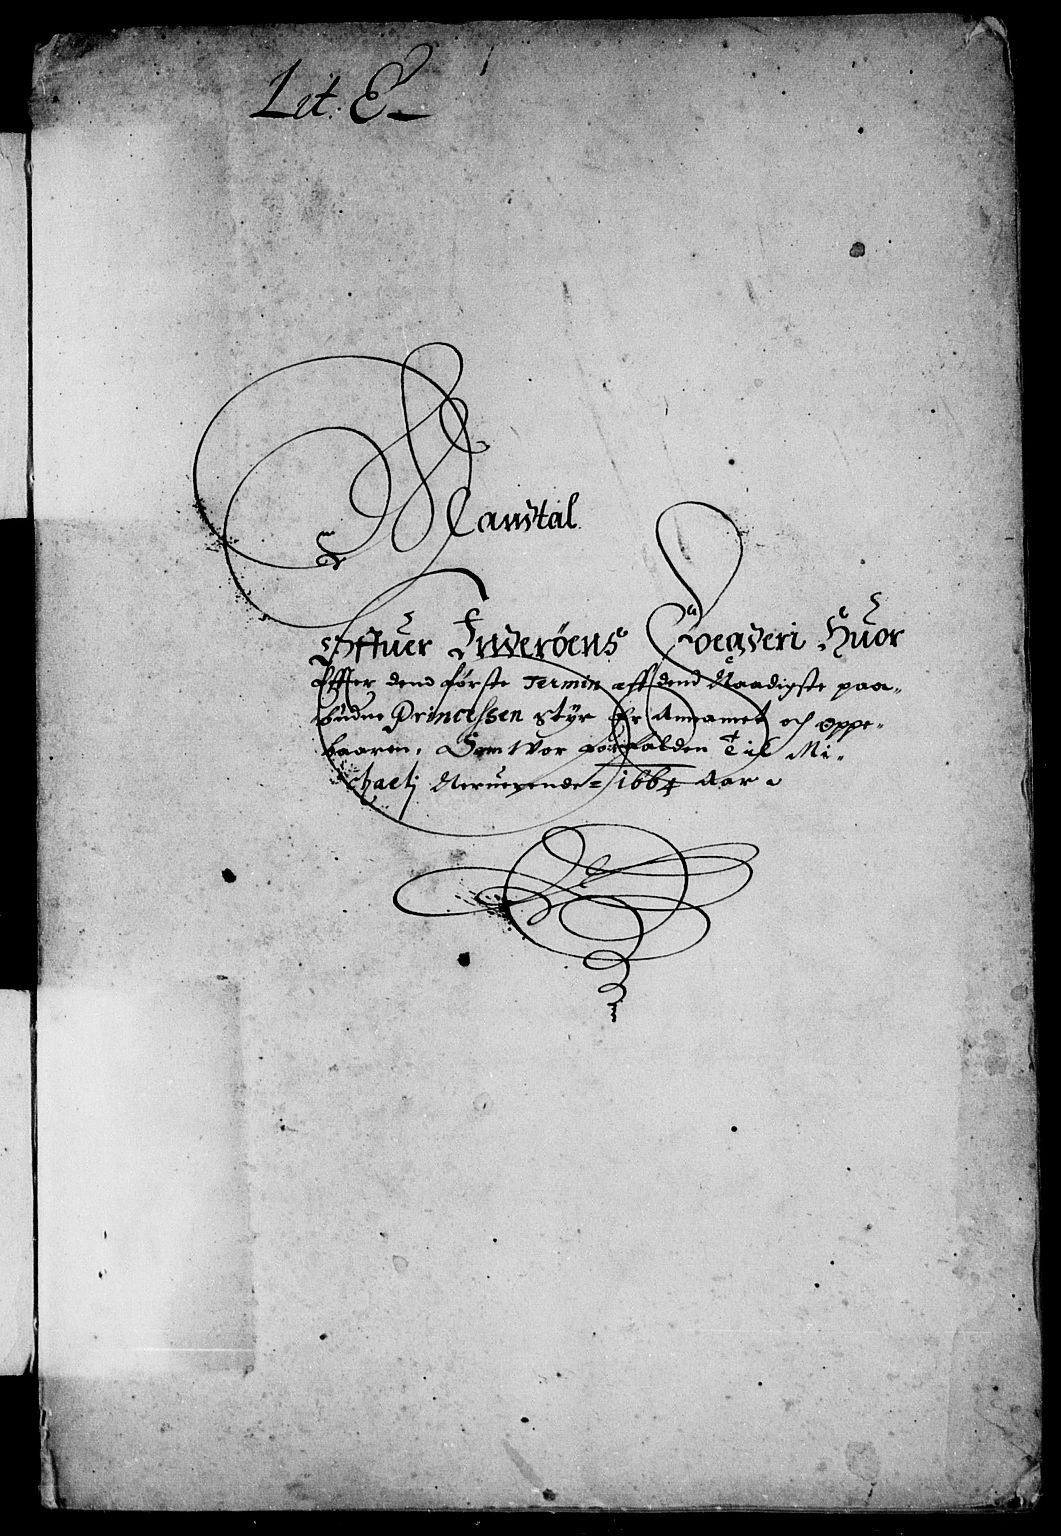 Lit. E
Mandtal
Offuer Inderöens Foegderi Huor
Effter dend første Termin aff dend Naadigste paa-
budne Princessen Styr Er Annamet och oppe-
baaren, Som War forfalden Til Mi-
chaelj Neruerende 1664 Aar